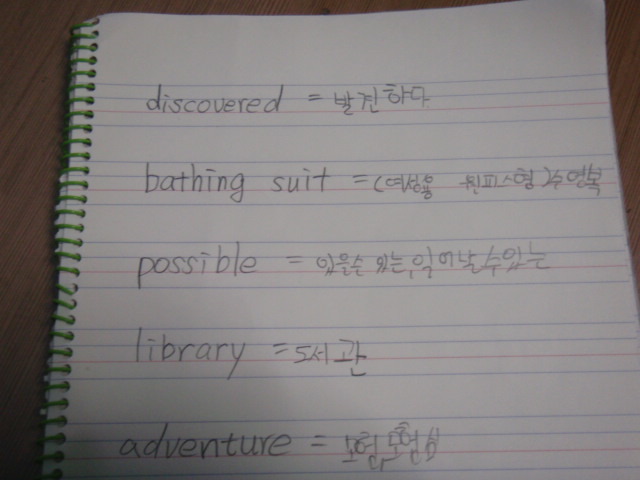 discovered = 발견하다
bathing suit = (여성용 원피스형)수영복
possible = 있을수 있는, 일어날 수 있는
library = 도서관
adventure = 모험, 모험심